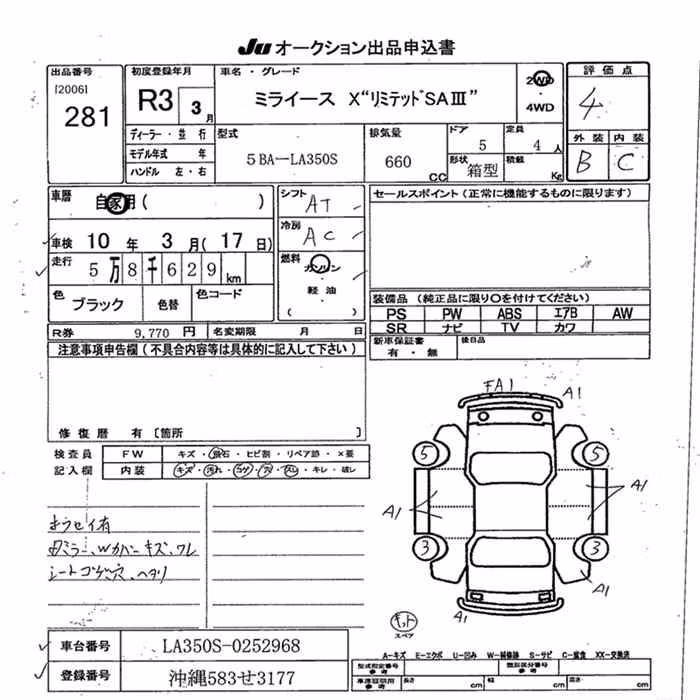 Ju オークション出品申込書
出品番号
[2006]
281
初度登録年月
R3 3月
ディーラー・並行
モデル年式 年
ハンドル 左・右
車名・グレード
ミライース X"リミテッドSAⅢ"
2WD
・
4WD
型式
5BA-LA350S
排気量
660 cc
ドア
5
定員
4人
形状
箱型
積載
Kg
評価点
4
外装 内装
B C
車歴 自家用( )
車検 10年 3月(17日)
走行 5万8千629km
色 ブラック 色替 色コード
シフト AT
冷房 AC
燃料 ガソリン
・
軽油
( )
セールスポイント(正常に機能するものに限ります)
装備品(純正品に限り○を付けてください)
PS PW ABS エアB AW
SR ナビ TV カワ
新車保証書
有・無
後日品
R券 9,770円 名変期限 月 日
注意事項申告欄(不具合内容等は具体的に記入して下さい)
修復歴 有〔箇所 〕
検査員
記入欄
FW キズ・飛石・ヒビ割・リペア跡・×要
内装 キズ・汚れ・コゲ・穴・スレ・キレ・破レ
ホウセイ有
Wカバーキズ、ワレ
シートコゲ穴、ヘタリ
FA1
A1
5
5
A1
A1
3
3
A1
A1
キット
スペア
車台番号 LA350S-0252968
登録番号 沖縄583せ3177
A-キズ E-エクボ U-凹み W-補修跡 S-サビ C-腐食 XX-交換済
型式指定番号
参考
類別区分番号
参考
車庫証明用
参考
長さ cm 幅 cm 高さ cm